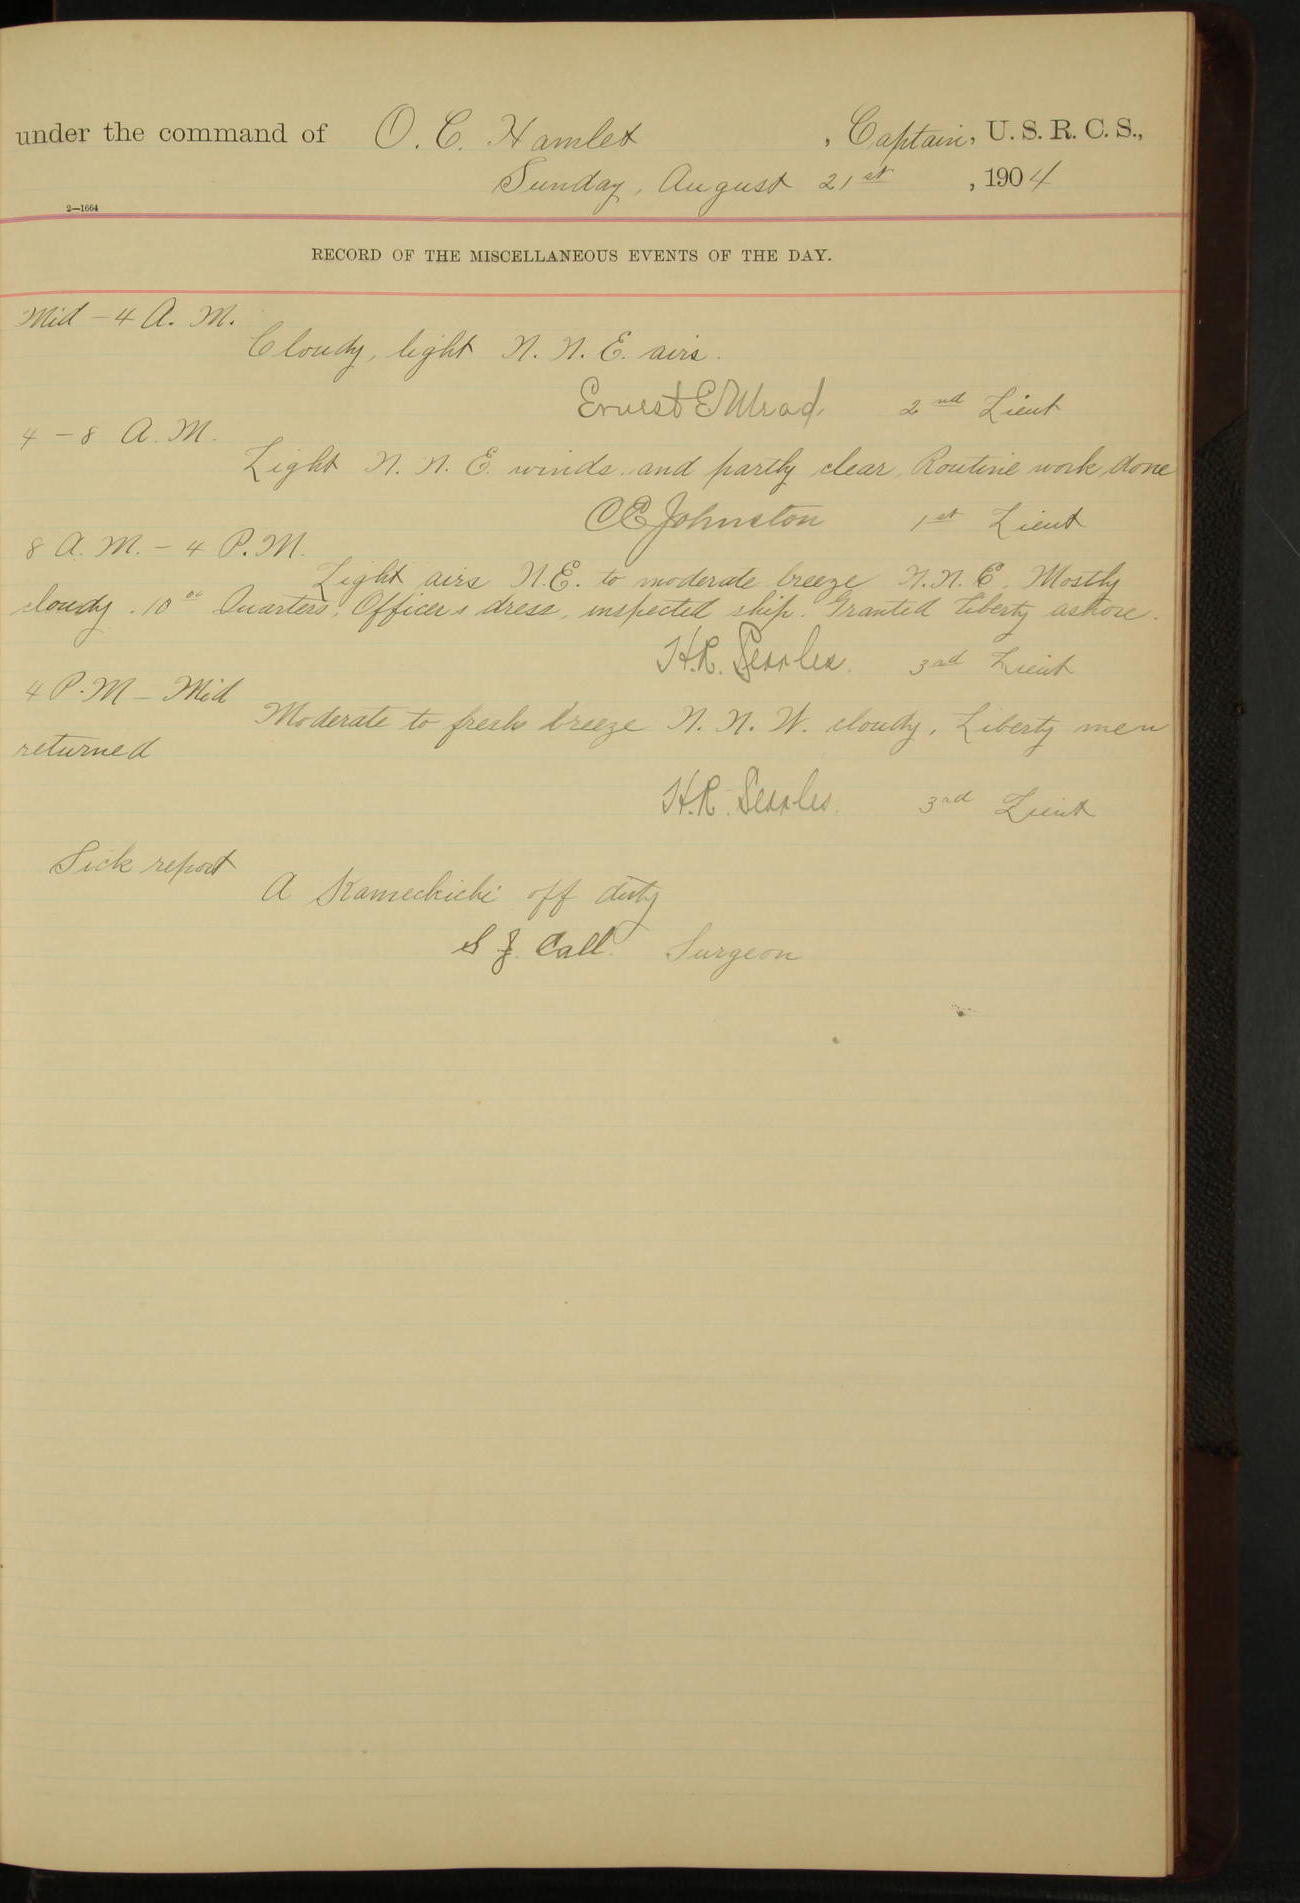 under the command of O. C. Hamlet , Captain, U. S. R. C. S.,
Sunday, August 21st , 1904
2—1664
RECORD OF THE MISCELLANEOUS EVENTS OF THE DAY.
Mid - 4 A. M.
Cloudy, light N. N. E. airs.
Ernest E Mead 2nd Lieut
4 - 8 A. M.
Light N. N. E. winds and partly clear. Routine work done
C E Johnston 1st Lieut
8 A. M. - 4 P. M.
Light airs N.E. to moderate breeze N. N. E. Mostly
cloudy. 10 00 Quarters, Officers dress, inspected ship. Granted liberty ashore.
H.R. Searles. 3rd Lieut
4 P. M - Mid
Moderate to fresh breeze N. N. W. cloudy, Liberty men
returned
H.R. Searles. 3rd Lieut
Sick report
A Kameckichi off duty
S J. Call. Surgeon